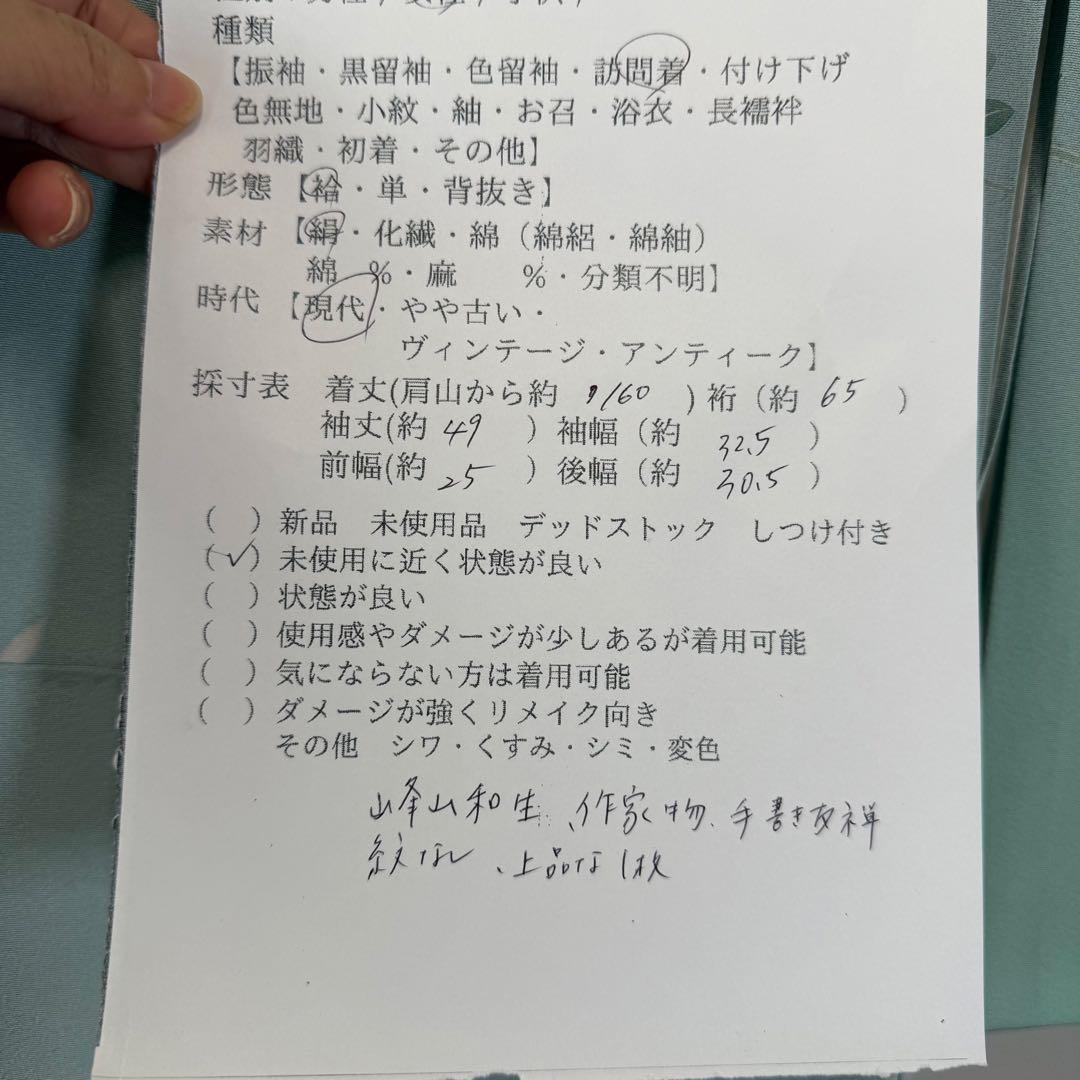 種類
【振袖・黒留袖・色留袖・訪問着・付け下げ
色無地・小紋・紬・お召・浴衣・長襦袢
羽織・初着・その他】
形態【袷・単・背抜き】
素材【絹・化繊・綿（綿絽・綿紬）
綿　％・麻　　％・分類不明】
時代【現代・やや古い・
ヴィンテージ・アンティーク】
採寸表　着丈(肩山から約 160 ) 裄（約 65 ）
袖丈(約 49 ）袖幅（約 32.5 ）
前幅(約 25 ）後幅（約 30.5 ）
（　）新品　未使用品　デッドストック　しつけ付き
（✓）未使用に近く状態が良い
（　）状態が良い
（　）使用感やダメージが少しあるが着用可能
（　）気にならない方は着用可能
（　）ダメージが強くリメイク向き
その他　シワ・くすみ・シミ・変色
峰山和生、作家物、手書き友禅
紋なし、上品な1枚